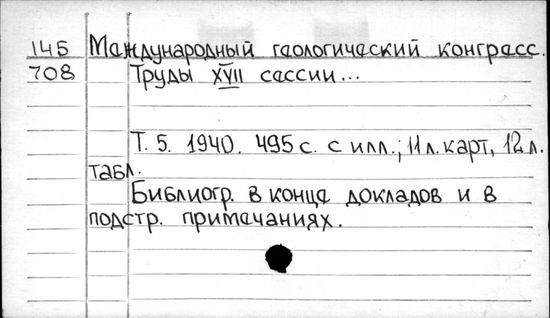 145 Международный геологический конгресс.
708 Труды XVII сессии...
Т. 5. 1940. 495 с. с илл.; 11 л. карт, 12 л.
табл.
Библиогр. в конце докладов и в
подстр. примечаниях.